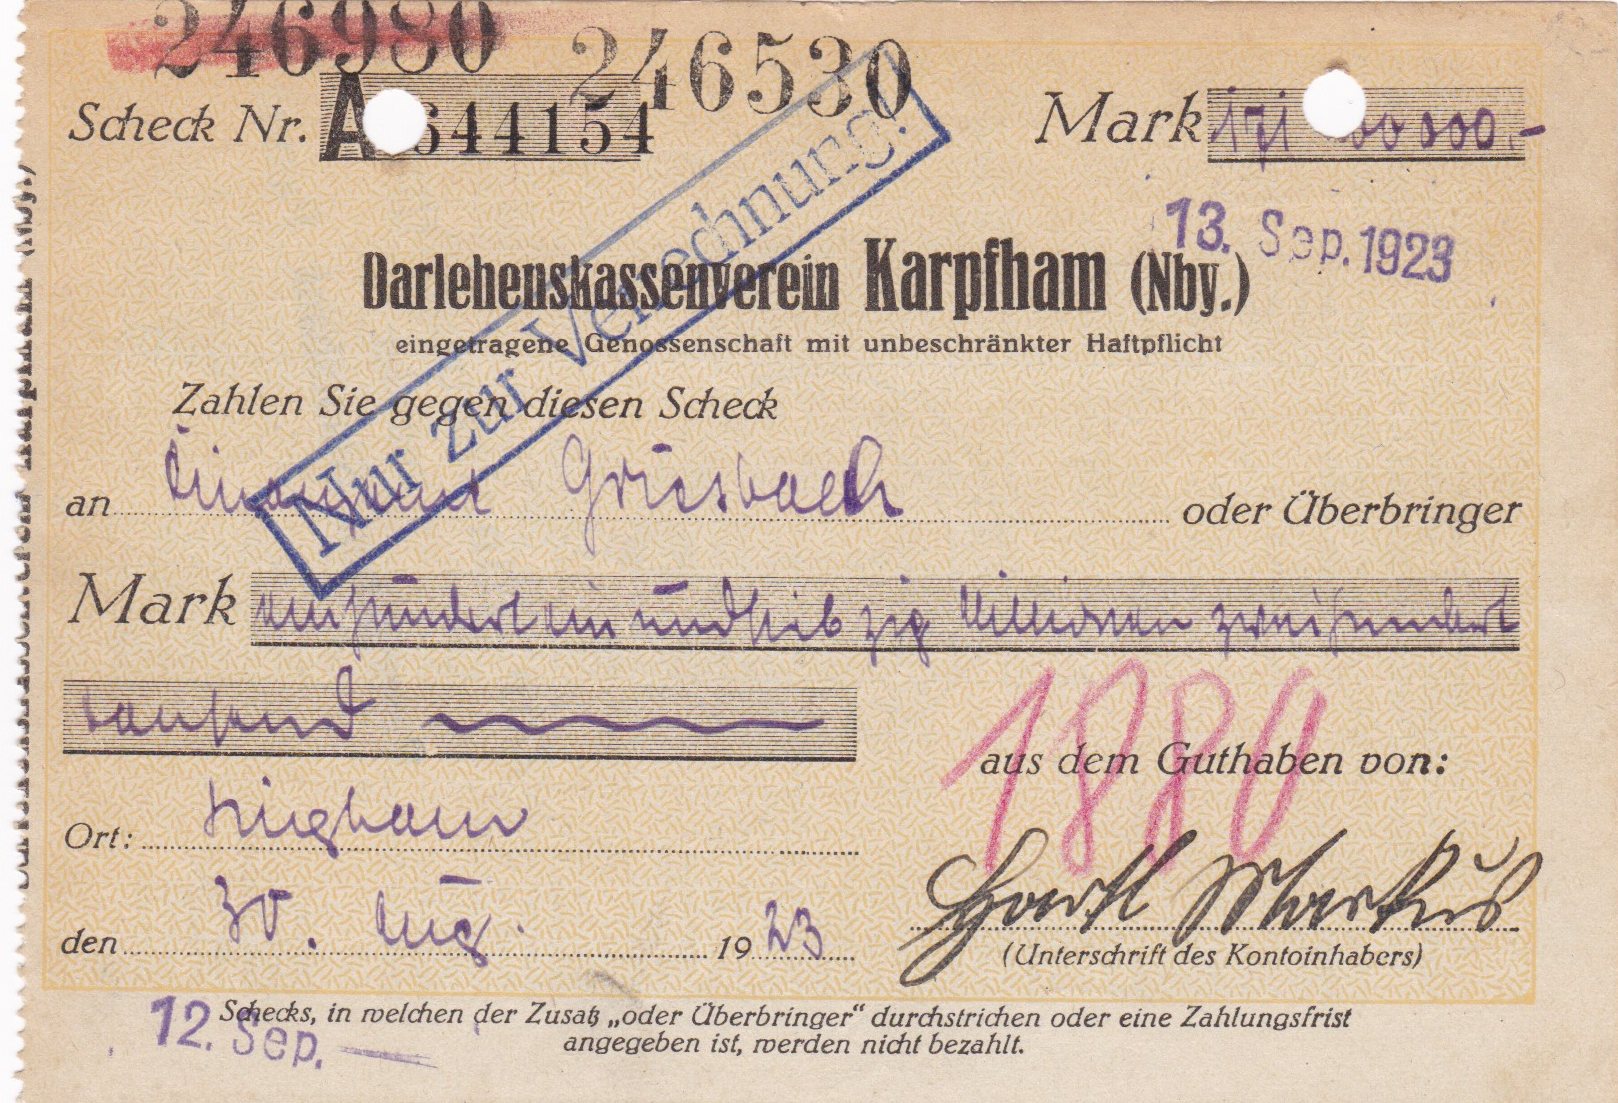 246980
246530
Scheck Nr. A 644154
Mark 171 00 000.-
13. Sep. 1923
Nur zur Verrechnung.
Darlehenskassenverein Karpfham (Nby.)
eingetragene Genossenschaft mit unbeschränkter Haftpflicht
Zahlen Sie gegen diesen Scheck
an Finanzamt Griesbach oder Überbringer
Mark einhundert ein und siebzig Millionen zweihundert
tausend
1880
aus dem Guthaben von:
Ort:
den 30. Aug. 1923
Hartl Markus
(Unterschrift des Kontoinhabers)
12. Sep.
Schecks, in welchen der Zusatz „oder Überbringer“ durchstrichen oder eine Zahlungsfrist
angegeben ist, werden nicht bezahlt.